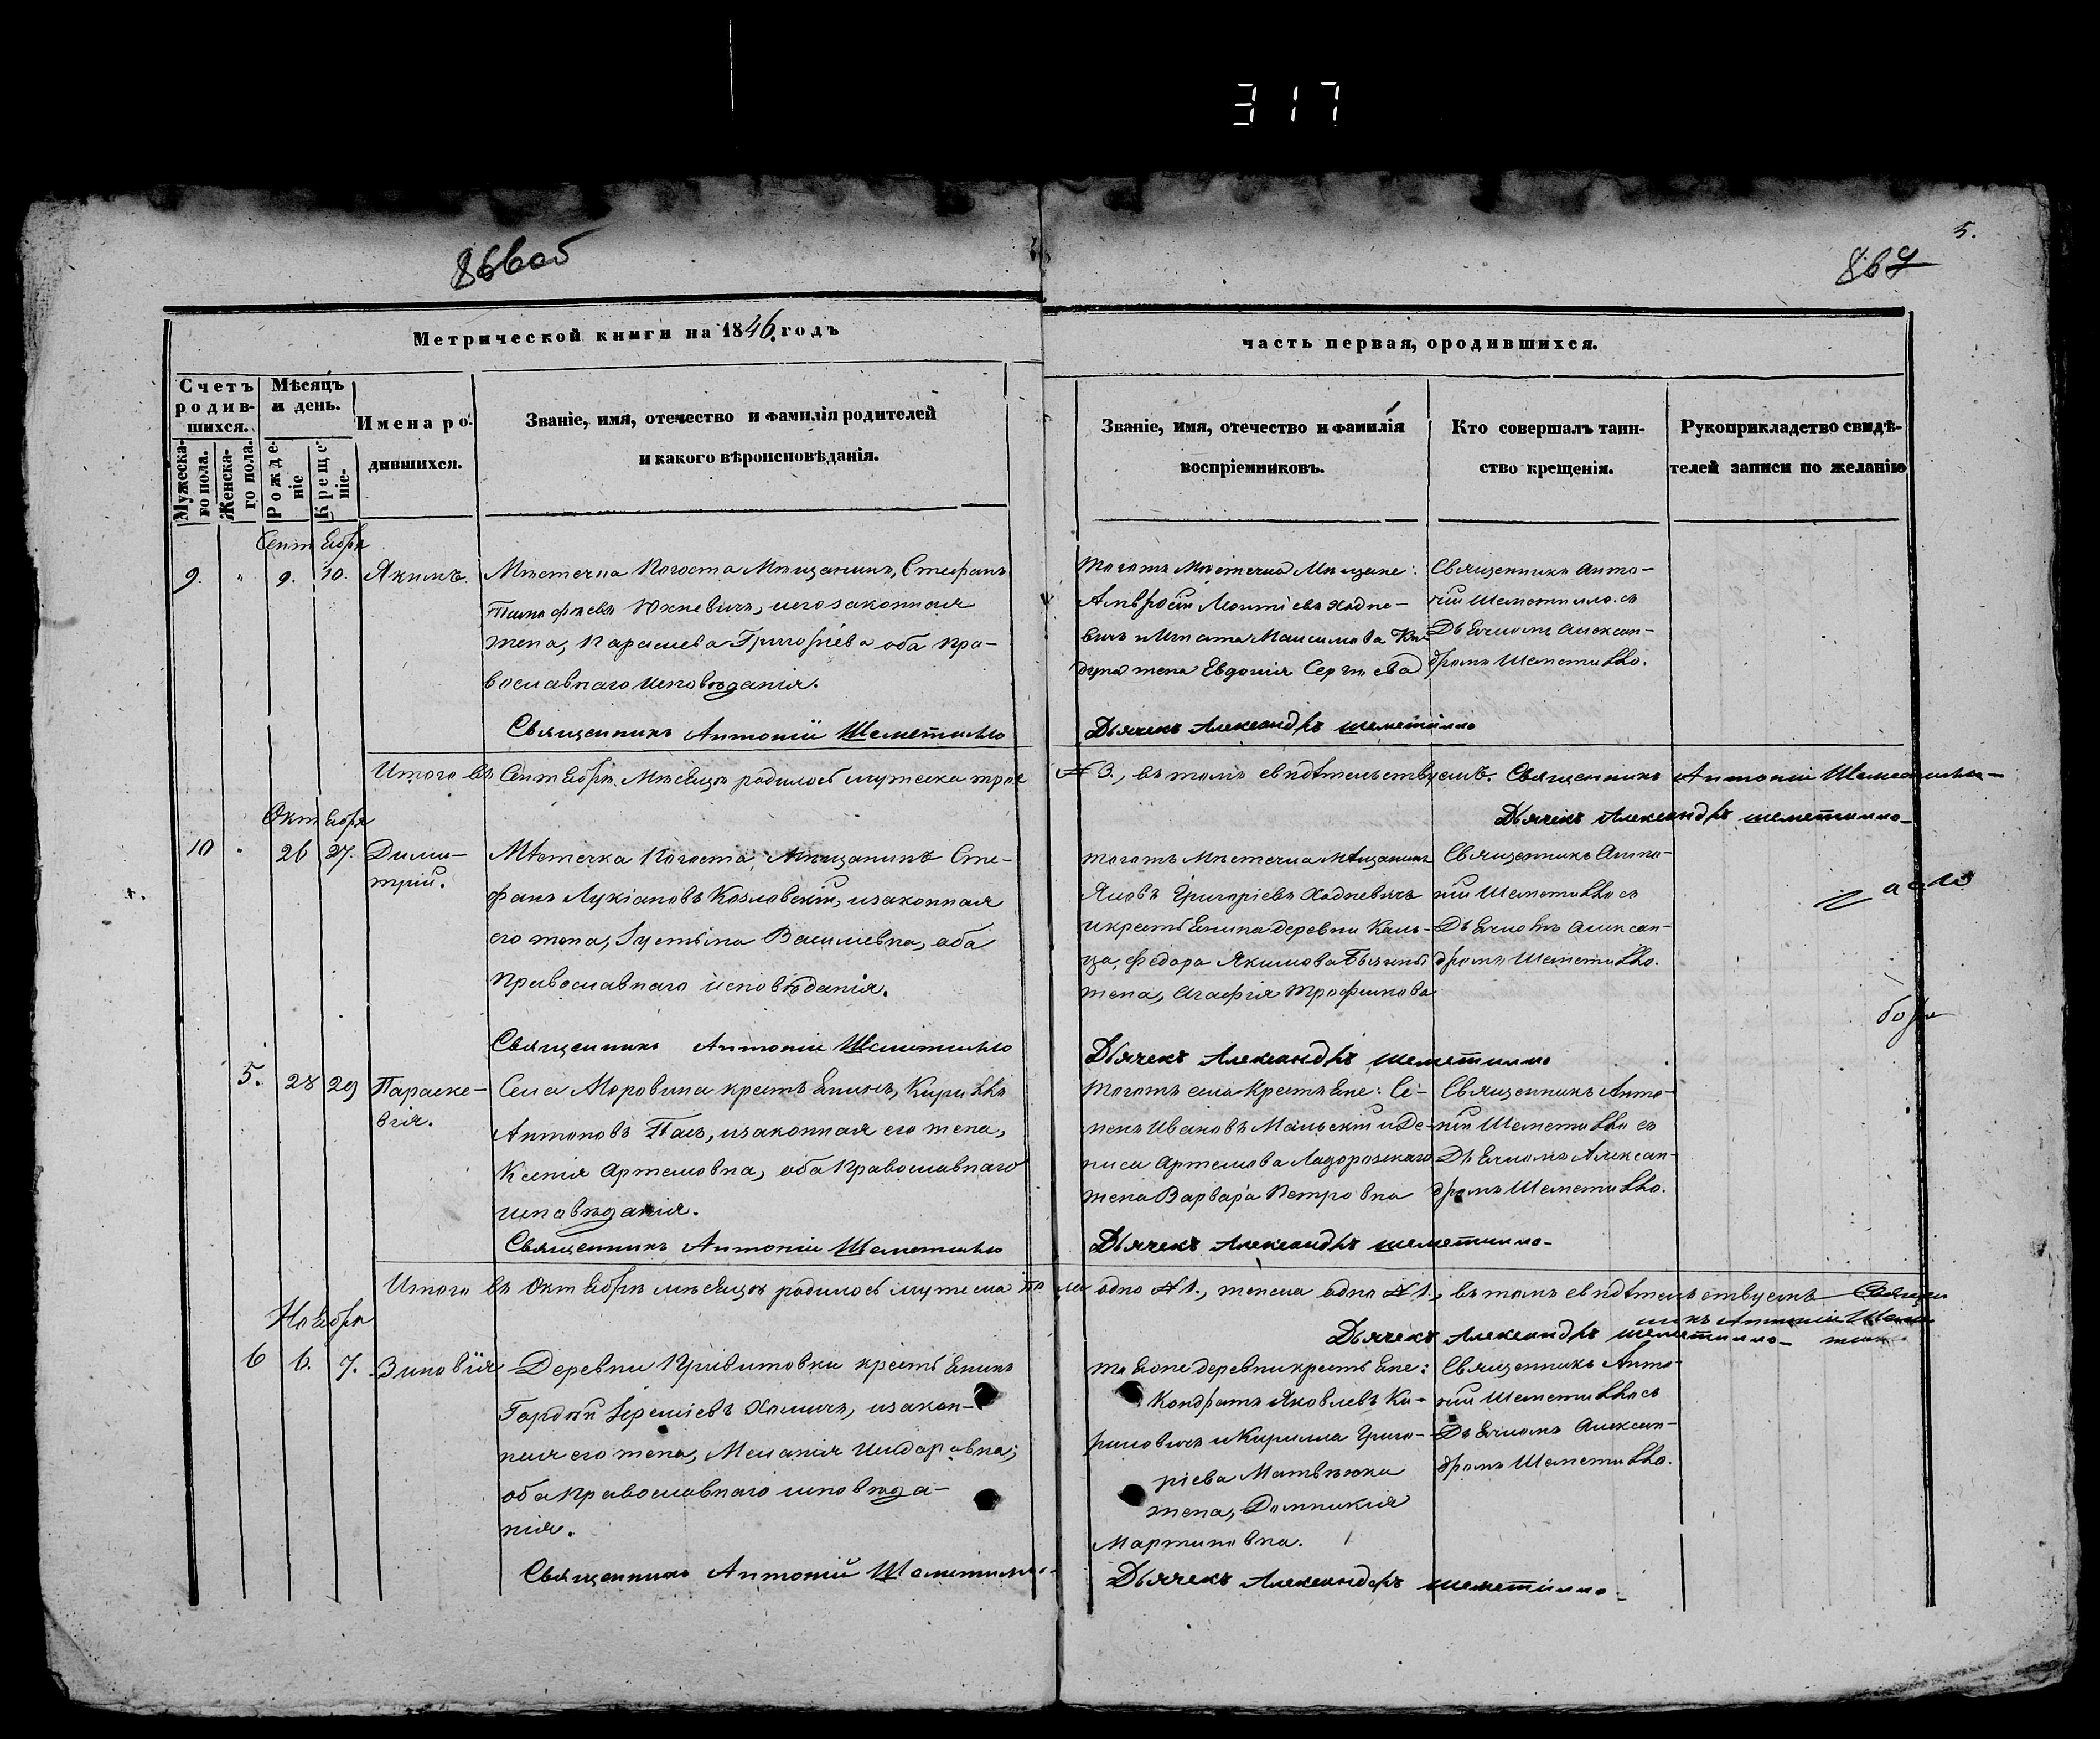 317
866об
867
5.
Метрической книги на 1846 годъ
часть первая, о родившихся.
Счетъ родившихся.
Мужеска-го пола.
Женска-го пола.
Мѣсяцъ и день.
Рожденіе
Крещеніе.
Имена родившихся.
Званіе, имя, отечество и фамилія родителей
и какого вѣроисповѣданія.
Званіе, имя, отечество и фамилія
воспріемниковъ.
Кто совершалъ таин-
ство крещенія.
Рукоприкладство свидѣ-
телей записи по желанію
Сентября
9. " 9. 10. Якимъ.
Мѣстечка Погоста Мѣщанинъ, Стефанъ
Тимофѣевъ Юхневичъ, и его законная
жена, Парасцева Григоріева оба Пра-
вославнаго исповѣданія.
Священникъ Антоній Шеметилло
Тогожъ Мѣстечка Мѣщане:
Амвросій Леонтіевъ Ходне-
вичъ и Игната Максимова
жена Евдокія Сергѣева
Священникъ Анто-
ній Шеметилло съ
Дьячкомъ Алексан-
дромъ Шеметилло.
Дьячекъ Александръ Шеметилло
Итого въ Сентябрѣ Мѣсяцѣ родилось мужеска трое № 3., въ томъ свидѣтельствуемъ. Священникъ Антоній Шеметилло
Дьячекъ Александръ Шеметилло
Октября
10 " 26 27. Дими-
трій.
Мѣстечка Погоста, Мѣщанинъ Сте-
фанъ Лукіановъ Козловскій, и законная
его жена, Іустина Василіевна, оба
Православнаго исповѣданія.
Священникъ Антоній Шеметилло
тогожъ Мѣстечка Мѣщанинъ
Яковъ Григоріевъ Ходневичъ
и крестьянина деревни Каль-
ца, Ѳедора Якимова
жена, Агафія Трофимова
Священникъ Анто-
ній Шеметилло съ
Дьячкомъ Алексан-
дромъ Шеметилло.
Дьячекъ Александръ Шеметилло
5. 28 29 Параске-
вія.
Села Моровина крестьянинъ, Кириллъ
Антоновъ Пась, и законная его жена,
Ксенія Артемовна, оба Православнаго
исповѣданія.
Священникъ Антоній Шеметилло
Тогожъ села Крестьяне: Се-
менъ Ивановъ Мальскій и Де-
ниса Артемова Ладорожскаго
жена Варвара Петровна
Священникъ Анто-
ній Шеметилло съ
Дьячкомъ Алексан-
дромъ Шеметилло.
Дьячекъ Александръ Шеметилло
Итого въ Октябрѣ мѣсяцѣ родилось мужеска пола одно № 1., женска одно № 1., въ томъ свидѣтельствуемъ Священ-
никъ Антоній Шеме-
Дьячекъ Александръ Шеметилло
Ноября
6 6. 7. Зиновія
Деревни Кривитовки крестьянинъ
Гордѣй Іереміевъ Хомичъ, и закон-
ная его жена, Меланія Исидоровна;
оба Православнаго исповѣда-
нія.
Священникъ Антоній Шеметилло
Тояже деревни крестьяне:
Кондратъ Яковлевъ Ки-
риловичъ и Кирилла Григо-
ріева Матвѣюка
жена, Домникія
Мартиновна.
Священникъ Анто-
ній Шеметилло съ
Дьячкомъ Алексан-
дромъ Шеметилло.
Дьячекъ Александръ Шеметилло